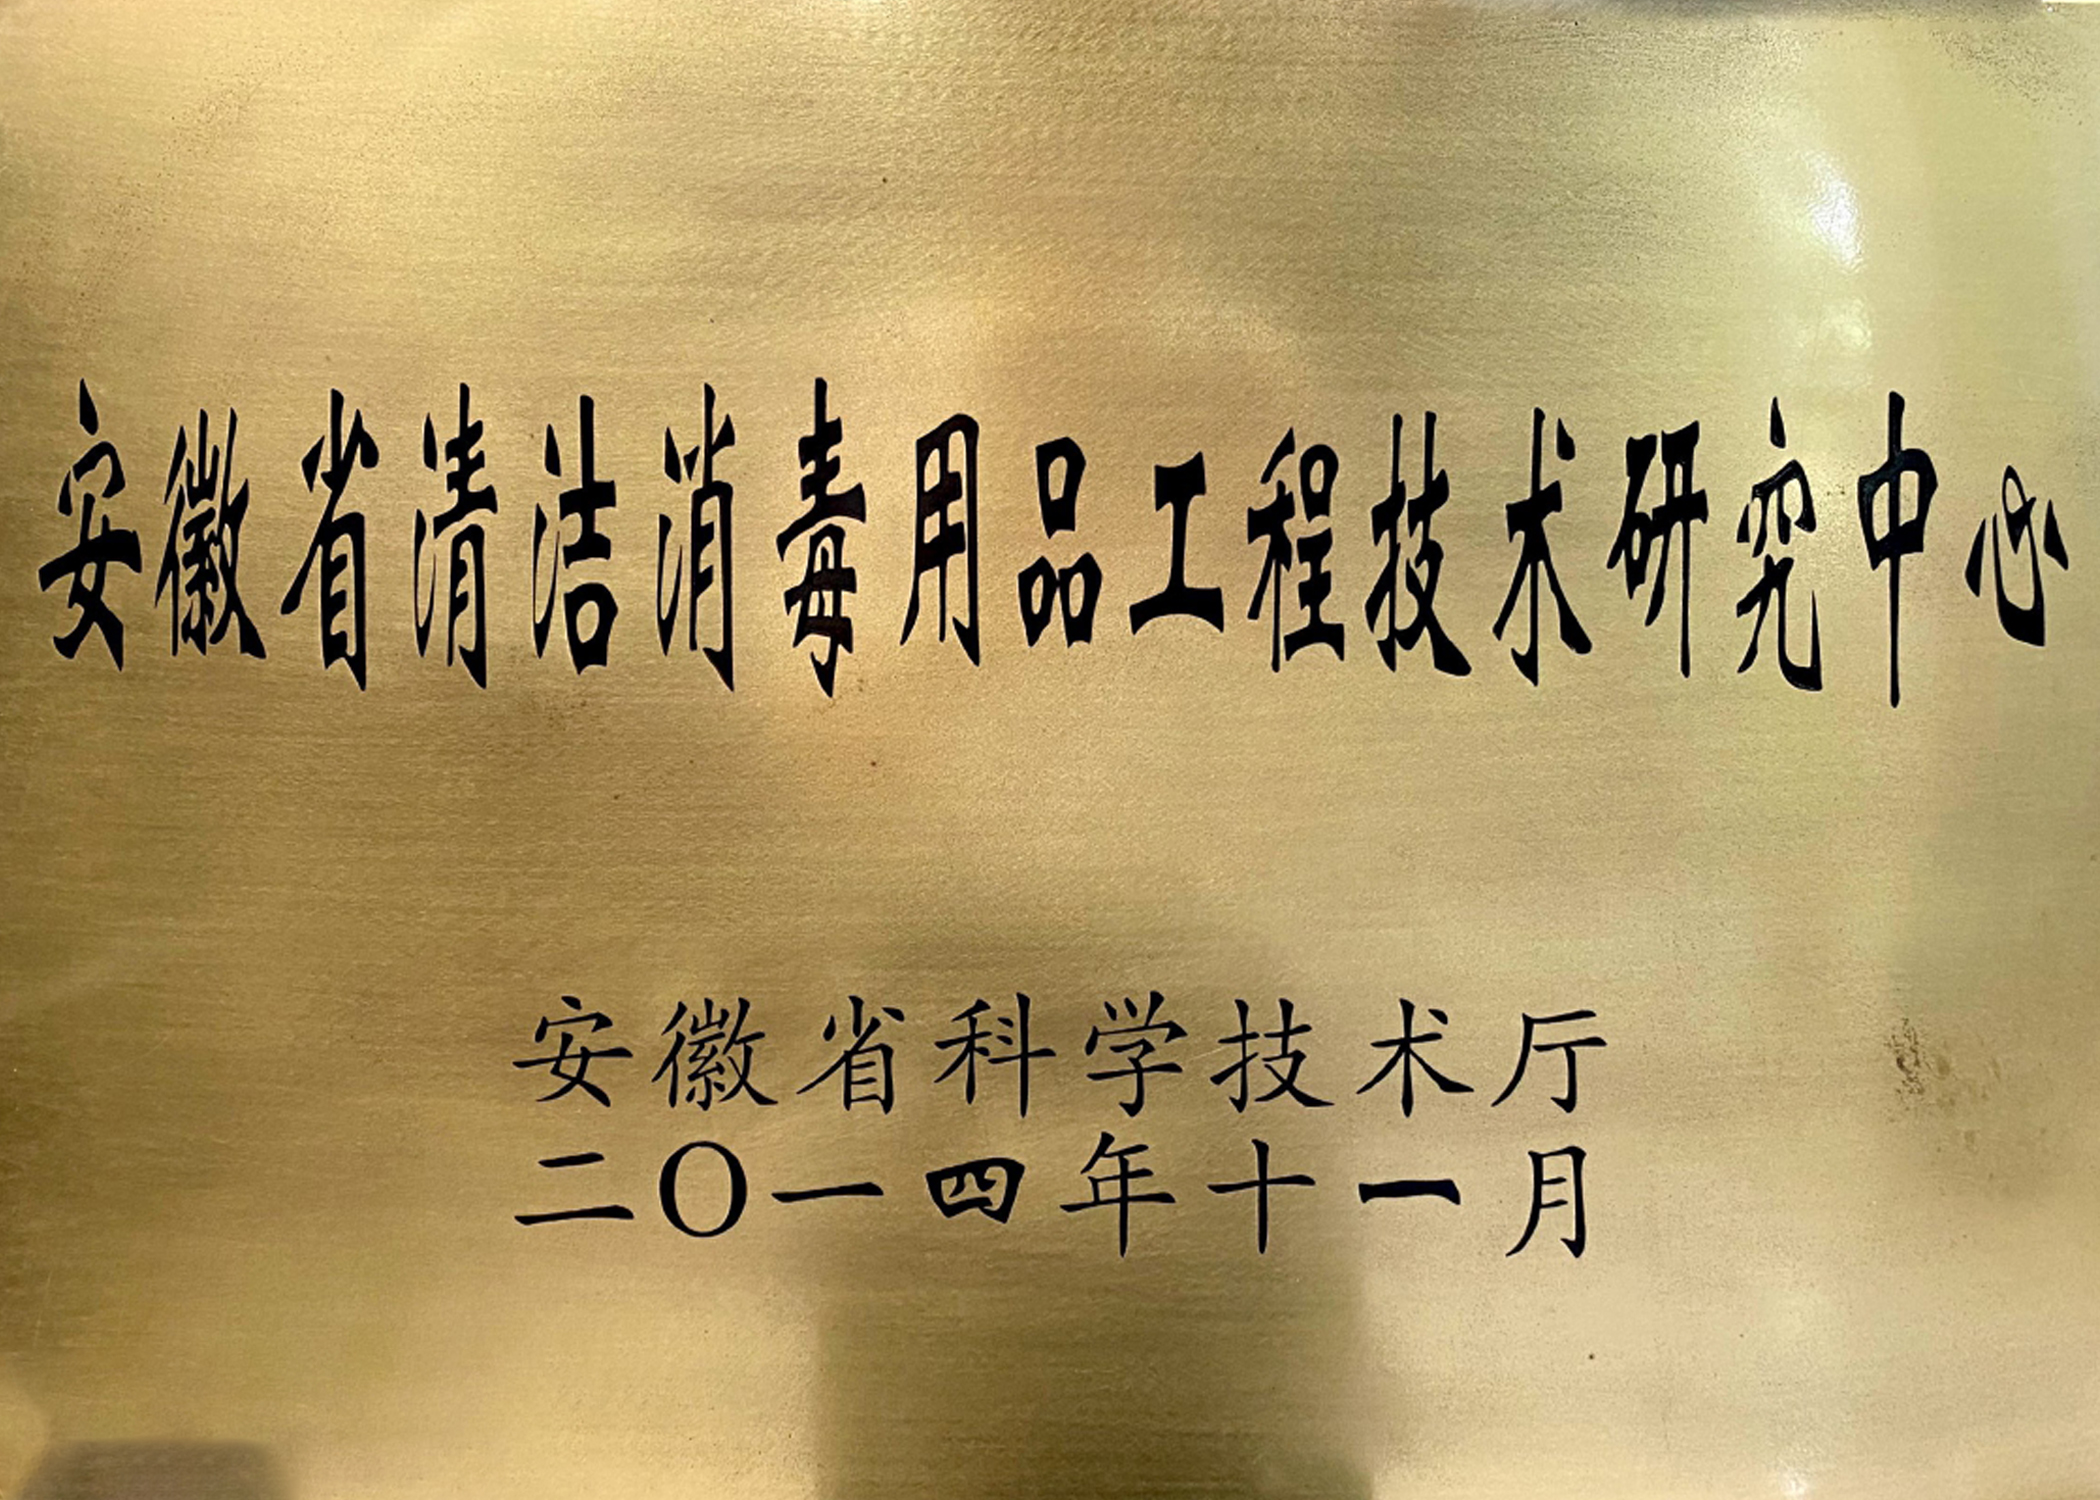 安徽省清洁消毒用品工程技术研究中心
安徽省科学技术厅
二〇一四年十一月